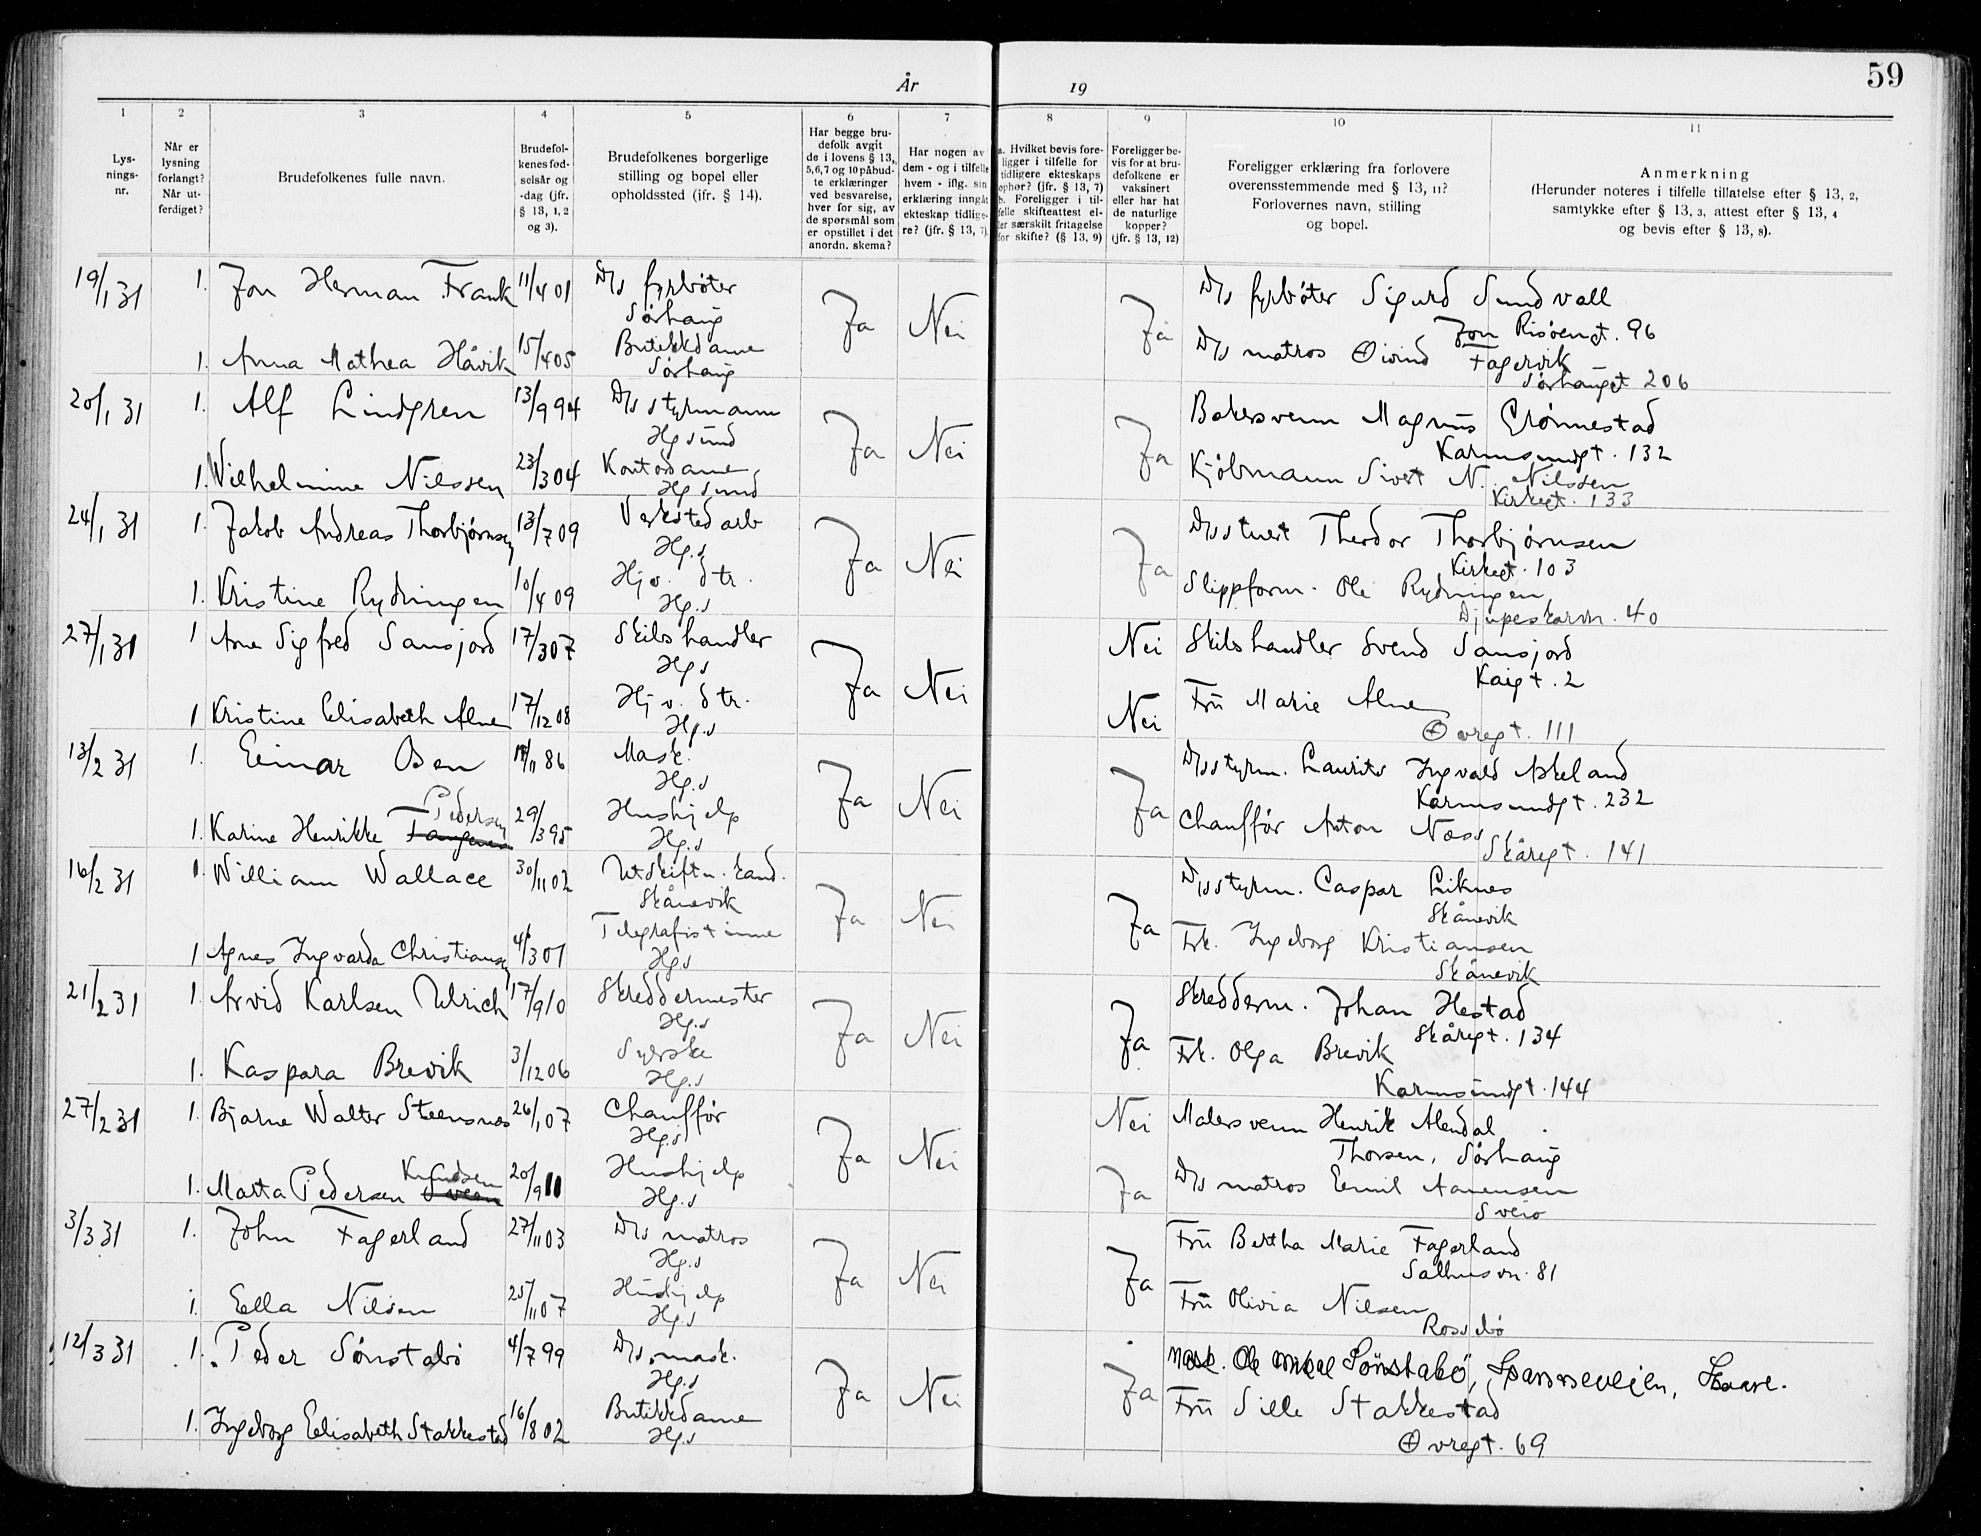 59
År 19
1 2 3 4 5 6 7 8 9 10 11
Lys-
nings-
nr.
Når er
lysning
forlangt?
Når ut-
ferdiget?
Brudefolkenes fulle navn.
Brudefol-
kenes fød-
selsår og
-dag (jfr.
§ 13, 1, 2
og 3).
Brudefolkenes borgerlige
stilling og bopel eller
opholdssted (jfr. § 14).
Har begge bru-
defolk avgit
de i lovens § 13,
5,6,7 og 10 påbud-
te erklæringer
ved besvarelse,
hver for sig, av
de spørsmål som
er opstillet i det
anordn. skema?
Har nogen av
dem - og i tilfelle
hvem - iflg. sin
erklæring inngåt
ekteskap tidlige-
re? (jfr. § 13, 7).
a. Hvilket bevis fore-
ligger i tilfelle for
tidligere ekteskaps
ophør? (jfr. § 13, 7)
b. Foreligger i til-
felle skifteattest el-
ler særskilt fritagelse
for skifte? (§ 13, 9)
Foreligger be-
vis for at bru-
defolkene er
vaksinert
eller har hat
de naturlige
kopper?
(jfr. § 13, 12)
Foreligger erklæring fra forlovere
overensstemmende med § 13, 11?
Forlovernes navn, stilling
og bopel.
Anmerkning
(Herunder noteres i tilfelle tillatelse efter § 13, 2,
samtykke efter § 13, 3, attest efter § 13, 4
og bevis efter § 13, 8).
19/1 31 1. Jon Herman Frank 11/4 01 D/s fyrbøter Ja Nei Ja D/s fyrbøter Sigurd Sundvall
Sørhaug Jon Risøengt. 96
1. Anna Mathea Håvik 15/4 05 Butikkdame D/s matros Øivind Fagervik
Sørhaug Sørhauggt 206
20/1 31 1. Alf Lindgren 13/9 94 D/s styrmann Ja Nei Ja Bakersvenn Magnus Grønnestad
Hgsund Karmsundgt. 132
1. Wilhelmine Nilssen 23/3 04 Kontordame Kjøbmann Sivert N. Nilssen
Hgsund Kirkegt. 133
24/1 31 1. Jakob Andreas Thorbjørnsen 13/7 09 Verkstedarb Ja Nei Ja D/s stuert Theodor Thorbjørnsen
Hg.s Kirkegt. 103
1. Kristine Rydningen 10/4 09 Hjv. dtr. Slippform. Ole Rydningen
Hg.s Djupeskarvn. 40
27/1 31 1 Arne Sigfred Sansjord 17/3 07 Skibshandler Ja Nei Nei Skibshandler Svend Sansjord
Hgs Kaigt. 2
1 Kristine Elisabeth Alne 17/12 08 Hjv. dtr. Nei Frü Marie Alne
Hg.s Øvregt. 111
13/2 31 1. Einar Osen /11 86 Mask. Ja Nei Ja D/s styrm. Laurits Ingvald Askeland
Hg.s Karmsundgt. 232
Pedersen
1. Karine Henrikke Tangenes 29/3 95 Hushjelp Chauffør Anton Næss
Hg.s Skåregt. 141
16/2 31 1. William Wallace 30/11 02 Utskiftn. kand. Ja Nei Ja D/s styrm. Caspar Liknes
Skånevik Skånevik
1 Agnes Ingvarda Christiansen 4/3 01 Telegrafistinne Frk. Ingeborg Kristiansen
Hgs Skånevik
21/2 31 1. Arvid Karlsen Ulrich 17/9 10 Skreddermester Ja Nei Ja Skredderm. Johan Hestad
Hg.s Skåregt. 134
1. Kaspara Brevik 3/12 06 Syerske Frk. Olga Brevik
Hg.s Karmsundgt. 144
27/2 31 1. Bjarne Walter Steensnæs 26/1 07 Chauffør Ja Nei Nei Malersvenn Henrik Alendal
Hg.s Thorsen, Sørhaug
Knudsen
1. Marta Pedersen Sveen 20/9 11 Hushjelp Ja D/s matros Emil Aanensen
Hg.s Sveio
3/3 31 1. John Fagerland 27/11 03 D/s matros Ja Nei Ja Frü Bertha Marie Fagerland
Hg.s Salhusvn. 81
1. Ella Nilsen 25/11 07 Hushjelp Frü Olivia Nilsen
Hg.s Rossebø
12/3 31 1. Peder Sønstabø 4/7 99 D/s mask. Ja Nei Ja Mask. Ole Mikal Sönstabö, Spannevejen, Skaare.
Hg.s
1. Ingeborg Elisabeth Stakkestad 16/8 02 Butikkdame Frü Sille Stakkestad
Hg.s Øvregt. 69